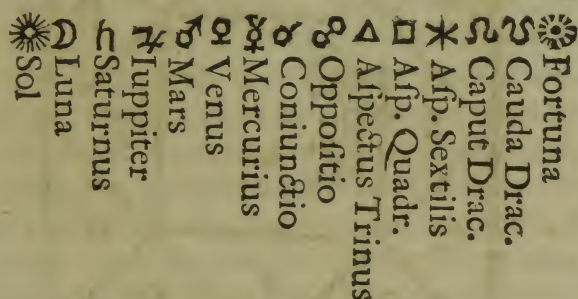 Fortuna
Cauda Drac.
Caput Drac.
Aſp. Sextilis
Aſp. Quadr.
Aſpectus Trinus
Oppoſitio
Coniunctio
Mercurius
Venus
Mars
Iuppiter
Saturnus
Luna
Sol